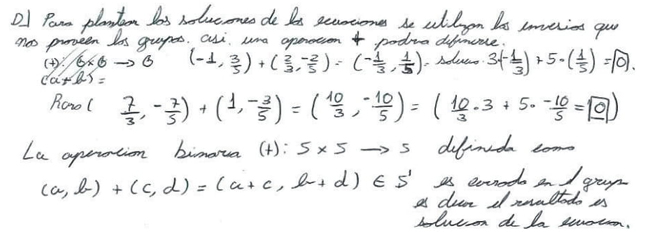 D) Para plantear las soluciones de las ecuaciones se utilizan los inversos que
nos proveen los grupos. así, una operacion + podria definirse.
(+): G×G → G (-1, 3/5) + (2/3, -2/5) = (-1/3, 1/5). 3·(-1/3) + 5·(1/5) = 0.
(a+b) =
Para ( 7/3, -7/5) + (1, -3/5) = (10/3, -10/5) = (10/3·3 + 5·-10/5 = 0)
La operacion binaria (+): S×S → S definida como
(a, b) + (c, d) = (a+c, b+d) ∈ S es cerrada en el grupo
es decir el resultado es
solucion de la ecuacion.